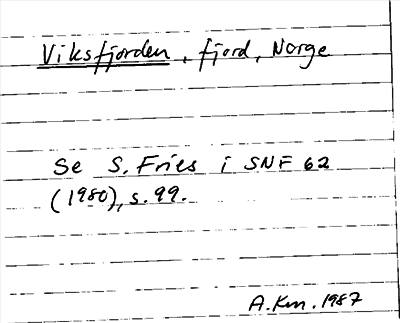 Viksfjorden, fjord, Norge
Se S. Fries i SNF 62
(1980), s. 99.
A. Km. 1987